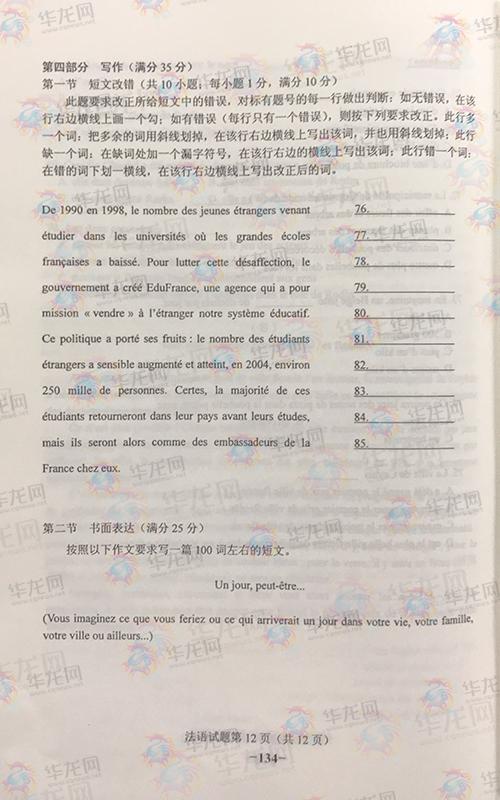 第四部分 写作（满分 35 分）
第一节 短文改错（共 10 小题；每小题 1 分，满分 10 分）
此题要求改正所给短文中的错误，对标有题号的每一行做出判断：如无错误，在该
行右边横线上画一个勾；如有错误（每行只有一个错误），则按下列要求改正。此行多
一个词：把多余的词用斜线划掉，在该行右边横线上写出该词，并也用斜线划掉；此行
缺一个词：在缺词处加一个漏字符号，在该行右边的横线上写出该词；此行错一个词：
在错的词下划一横线，在该行右边横线上写出改正后的词。
De 1990 en 1998, le nombre des jeunes étrangers venant 76.
étudier dans les universités où les grandes écoles 77.
françaises a baissé. Pour lutter cette désaffection, le 78.
gouvernement a créé EduFrance, une agence qui a pour 79.
mission « vendre » à l'étranger notre système éducatif. 80.
Ce politique a porté ses fruits : le nombre des étudiants 81.
étrangers a sensible augmenté et atteint, en 2004, environ 82.
250 mille de personnes. Certes, la majorité de ces 83.
étudiants retourneront dans leur pays avant leurs études, 84.
mais ils seront alors comme des embassadeurs de la 85.
France chez eux.
第二节 书面表达（满分 25 分）
按照以下作文要求写一篇 100 词左右的短文。
Un jour, peut-être...
(Vous imaginez ce que vous feriez ou ce qui arriverait un jour dans votre vie, votre famille,
votre ville ou ailleurs...)
法语试题第 12 页（共 12 页）
-134-
华龙网